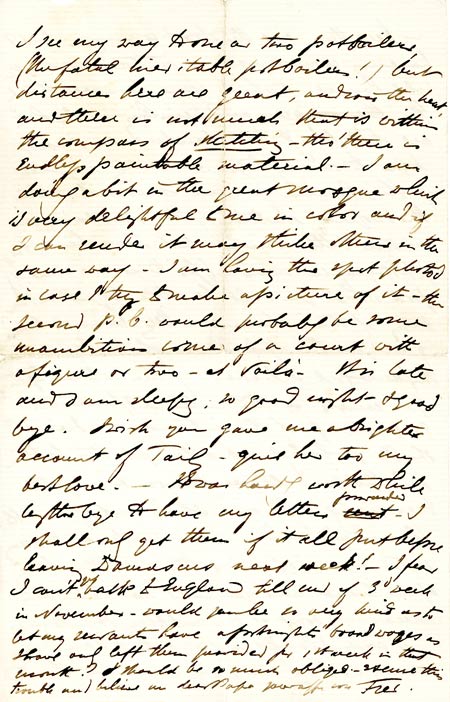 I see my way to one or two potboilers
(the fatal inevitable potboilers!) but
distances here are great, and so is the heat,
and there is not much that is within
the compass of sketching - tho' there is
endless paintable material. - I am
doing a bit in the great mosque which
is very delightful to me in color and if
I can render it may strike others in the
same way - I am having the spot photo'd
in case I try to make a picture of it - the
second p. b. would probably be some
unambitious corner of a court with
a figure or two - et voilà - tis late
and I am sleepy, so good night & good
bye. I wish you gave me a brighter
account of Taily - give her too my
best love. - It was hardly worth while
by the bye to have my letters forwarded - I
shall only get them if at all just before
leaving Damascus next week! - I fear
I can't be back to England till end of 3d week
in November - would you be so very kind as to
let my servants have a fortnight's board wages as
I have only left them provided for 1st week in that
month? I should be so much obliged - excuse this
trouble and believe me dear Papa your aff son Fred.